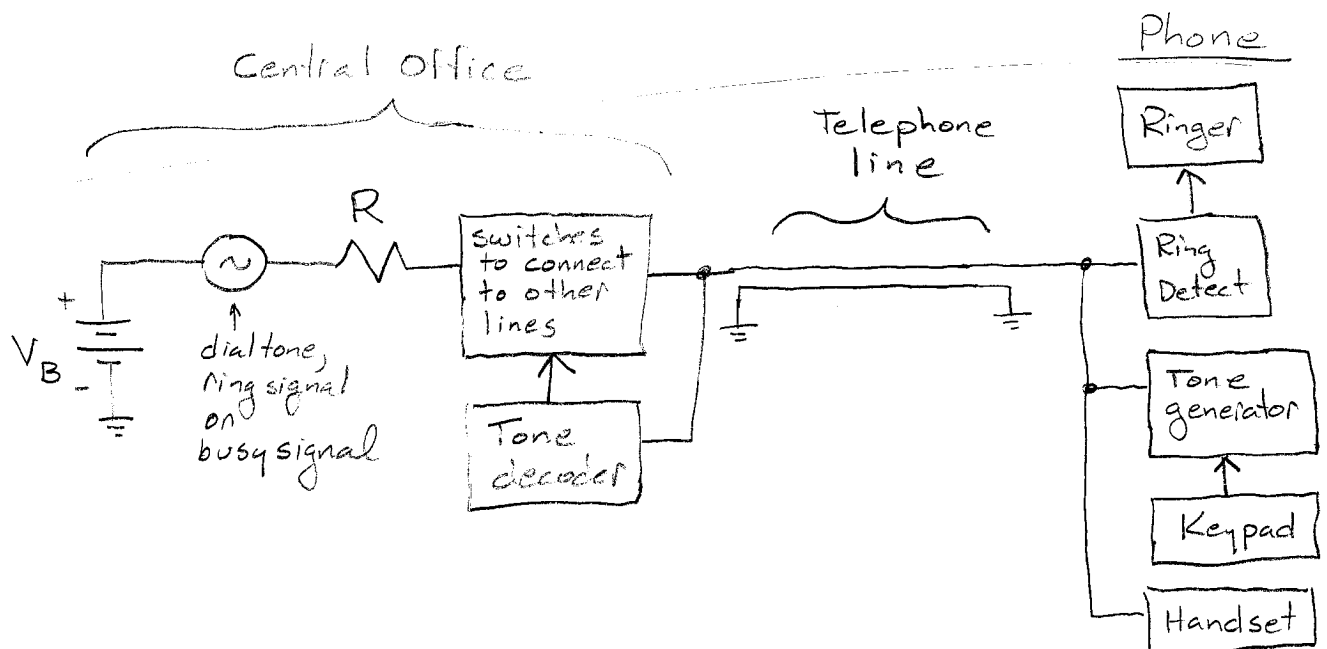 Central Office
Phone
Telephone
line
Ringer
R
switches
to connect
to other
lines
Ring
Detect
+
V_B
-
~
dial tone,
ring signal
on
busy signal
Tone
decoder
Tone
generator
Keypad
Handset